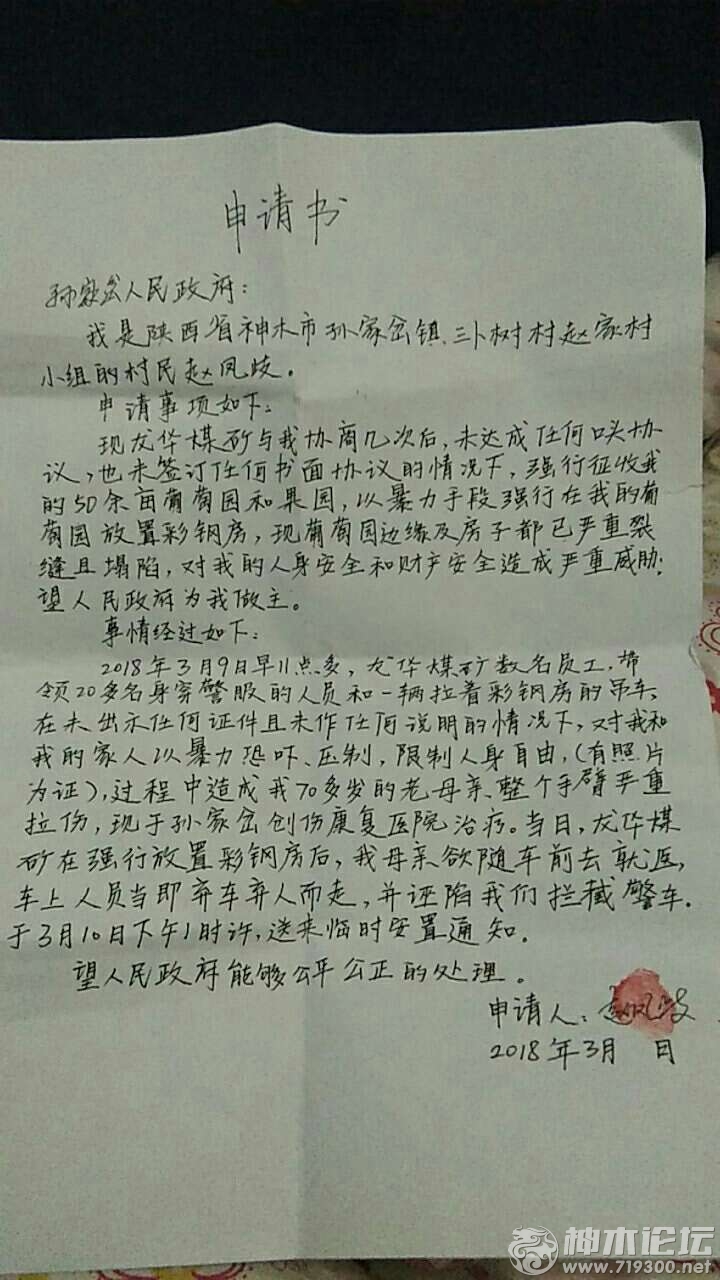 申请书
孙家岔人民政府：
我是陕西省神木市孙家岔镇三卜树村赵家村
小组的村民赵凤歧。
申请事项如下：
现龙华煤矿与我协商几次后，未达成任何口头协
议，也未签订任何书面协议的情况下，强行征收我
的50余亩葡萄园和果园，以暴力手段强行在我的葡
萄园放置彩钢房，现葡萄园边缘及房子都已严重裂
缝且塌陷，对我的人身安全和财产安全造成严重威胁；
望人民政府为我做主。
事情经过如下：
2018年3月9日早11点多，龙华煤矿数名员工，带
领20多名身穿警服的人员和一辆拉着彩钢房的吊车，
在未出示任何证件且未作任何说明的情况下，对我和
我的家人以暴力恐吓、压制，限制人身自由，（有照片
为证），过程中造成我70多岁的老母亲整个手臂严重
拉伤，现于孙家岔创伤康复医院治疗。当日，龙华煤
矿在强行放置彩钢房后，我母亲欲随车前去就医，
车上人员当即弃车弃人而走，并诬陷我们拦截警车。
于3月10日下午1时许，送来临时安置通知。
望人民政府能够公平公正的处理。
申请人：赵凤歧
2018年3月 日
神木论坛
www.719300.net